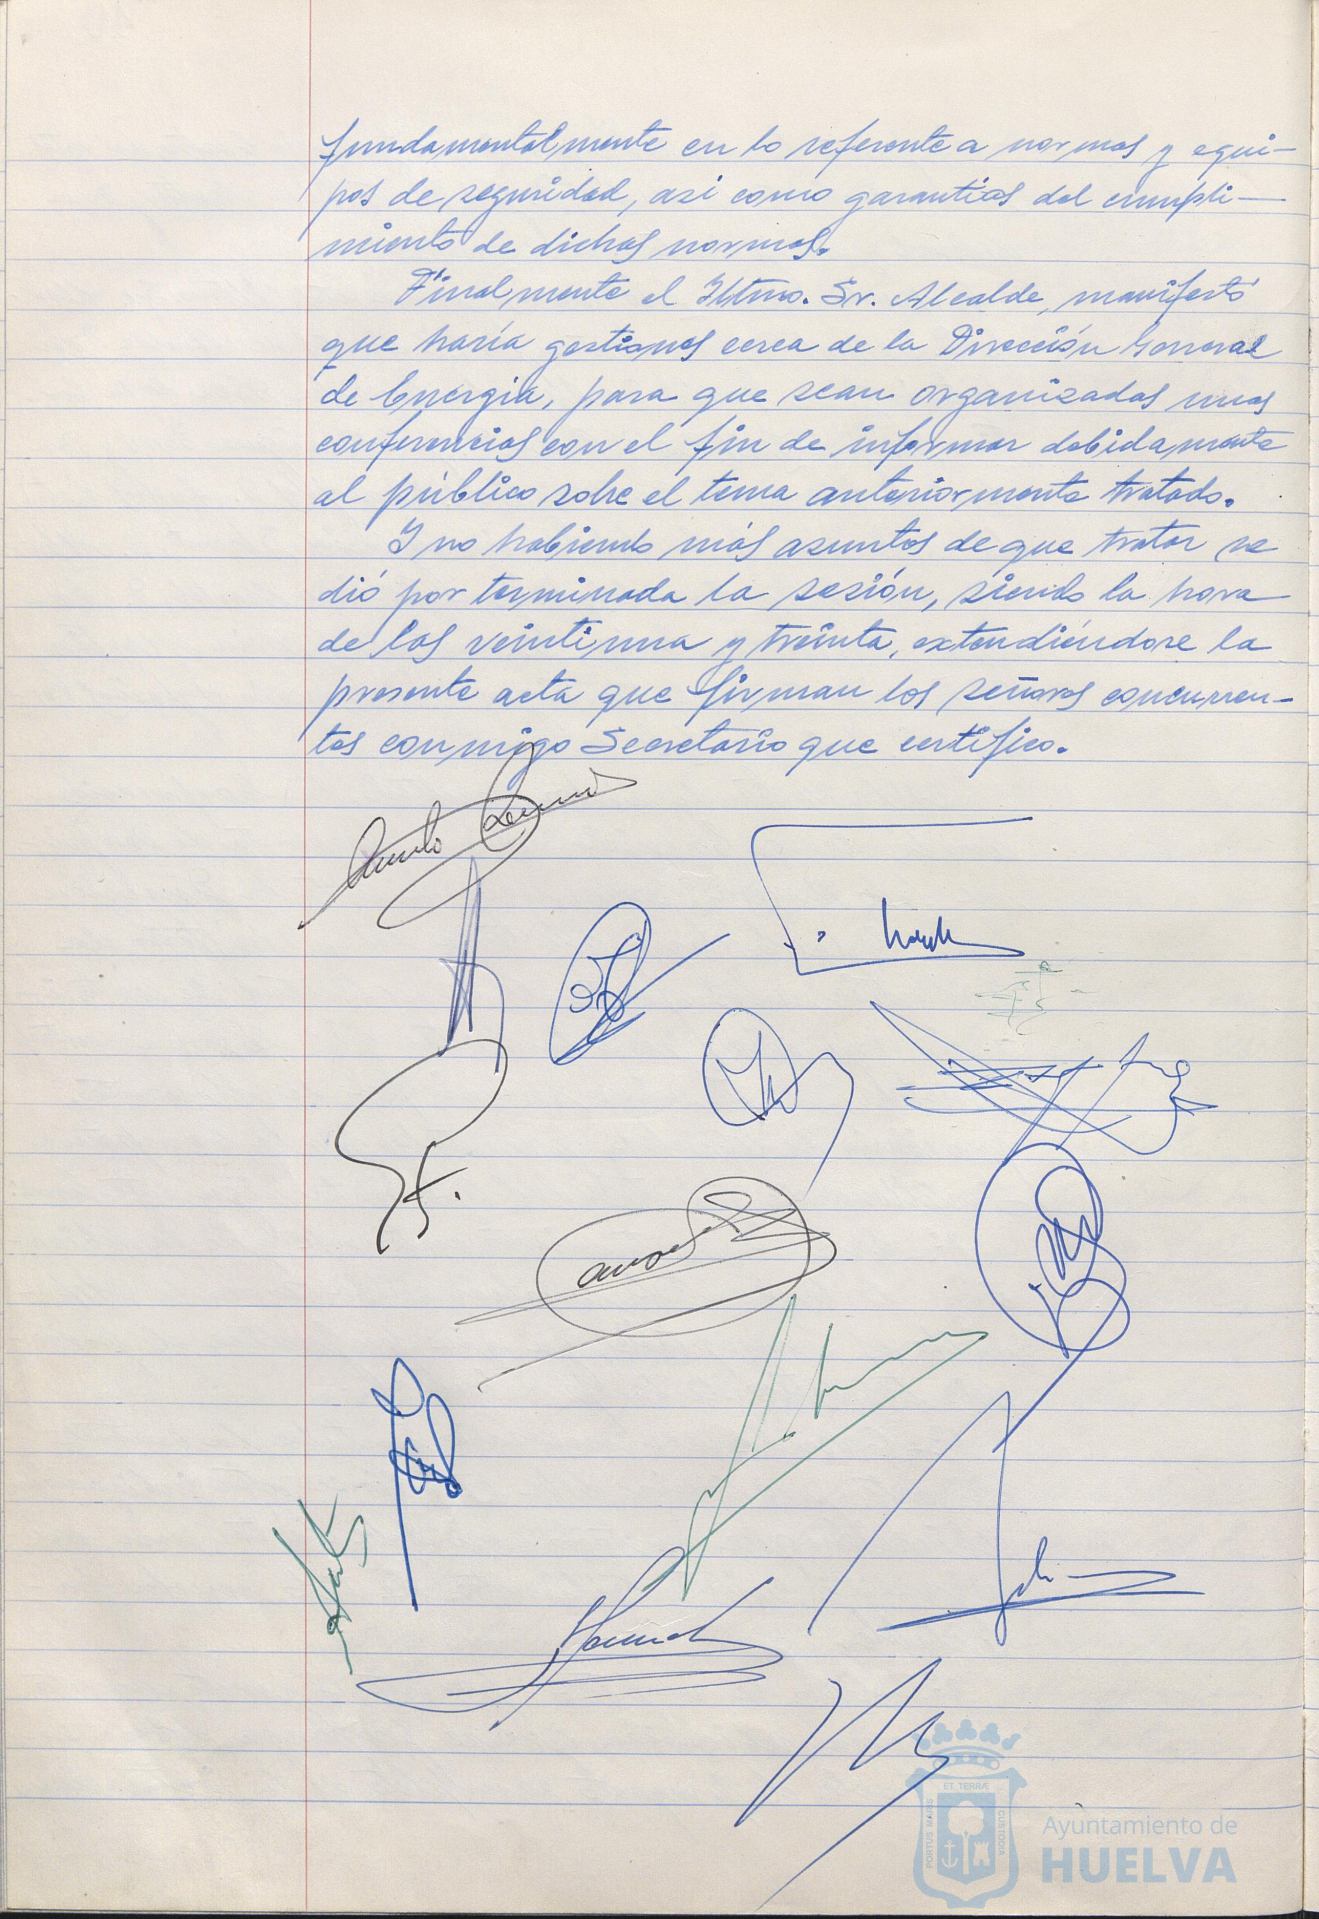 fundamentalmente en lo referente a normas y equi-
pos de seguridad, asi como garantías del cumpli-
miento de dichas normas.
Finalmente el Iltmo. Sr. Alcalde, manifestó
que haría gestiones cerca de la Dirección General
de Energía, para que sean organizadas unas
conferencias con el fin de informar debidamente
al público sobre el tema anteriormente tratado.
Y no habiendo más asuntos de que tratar se
dió por terminada la sesión, siendo la hora
de las veintiuna y treinta, extendiéndose la
presente acta que firman los señores concurren-
tes conmigo Secretario que certifico.
PORTUS MARIS
ET TERRÆ
CUSTODIA
Ayuntamiento de
HUELVA